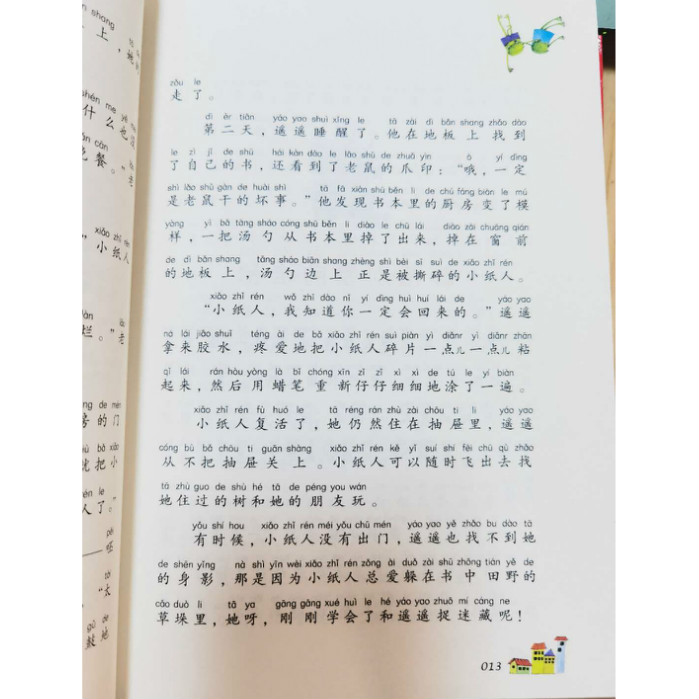 上，她
什么也没
晚餐。”
”小纸人
烂。”老
房的门
就把小
人了。”
呸
“太
鼓地
zǒu le
走了。
dì èr tiān yáo yao shuì xǐng le tā zài dì bǎn shang zhǎo dào
第二天，遥遥睡醒了。他在地板上找到
le zì jǐ de shū hái kàn dào le lǎo shǔ de zhuǎ yìn ò yí dìng
了自己的书，还看到了老鼠的爪印：“哦，一定
shì lǎo shǔ gàn de huài shì tā fā xiàn shū běn li de chú fáng biàn le mú
是老鼠干的坏事。”他发现书本里的厨房变了模
yàng yì bǎ tāng sháo cóng shū běn li diào le chū lái diào zài chuāng qián
样，一把汤勺从书本里掉了出来，掉在窗前
de dì bǎn shang tāng sháo biān shang zhèng shì bèi sī suì de xiǎo zhǐ rén
的地板上，汤勺边上正是被撕碎的小纸人。
xiǎo zhǐ rén wǒ zhī dào nǐ yí dìng huì huí lái de yáo yao
“小纸人，我知道你一定会回来的。”遥遥
ná lái jiāo shuǐ téng ài de bǎ xiǎo zhǐ rén suì piàn yì diǎnr yì diǎnr zhān
拿来胶水，疼爱地把小纸人碎片一点儿一点儿粘
qǐ lái rán hòu yòng là bǐ chóng xīn zǐ zǐ xì xì de tú le yí biàn
起来，然后用蜡笔重新仔仔细细地涂了一遍。
xiǎo zhǐ rén fù huó le tā réng rán zhù zài chōu ti li yáo yao
小纸人复活了，她仍然住在抽屉里，遥遥
cóng bù bǎ chōu ti guān shàng xiǎo zhǐ rén kě yǐ suí shí fēi chū qù zhǎo
从不把抽屉关上。小纸人可以随时飞出去找
tā zhù guo de shù hé tā de péng you wán
她住过的树和她的朋友玩。
yǒu shí hou xiǎo zhǐ rén méi yǒu chū mén yáo yao yě zhǎo bu dào tā
有时候，小纸人没有出门，遥遥也找不到她
de shēn yǐng nà shì yīn wèi xiǎo zhǐ rén zǒng ài duǒ zài shū zhōng tián yě de
的身影，那是因为小纸人总爱躲在书中田野的
cǎo duò li tā ya gāng gāng xué huì le hé yáo yao zhuō mí cáng ne
草垛里，她呀，刚刚学会了和遥遥捉迷藏呢！
013